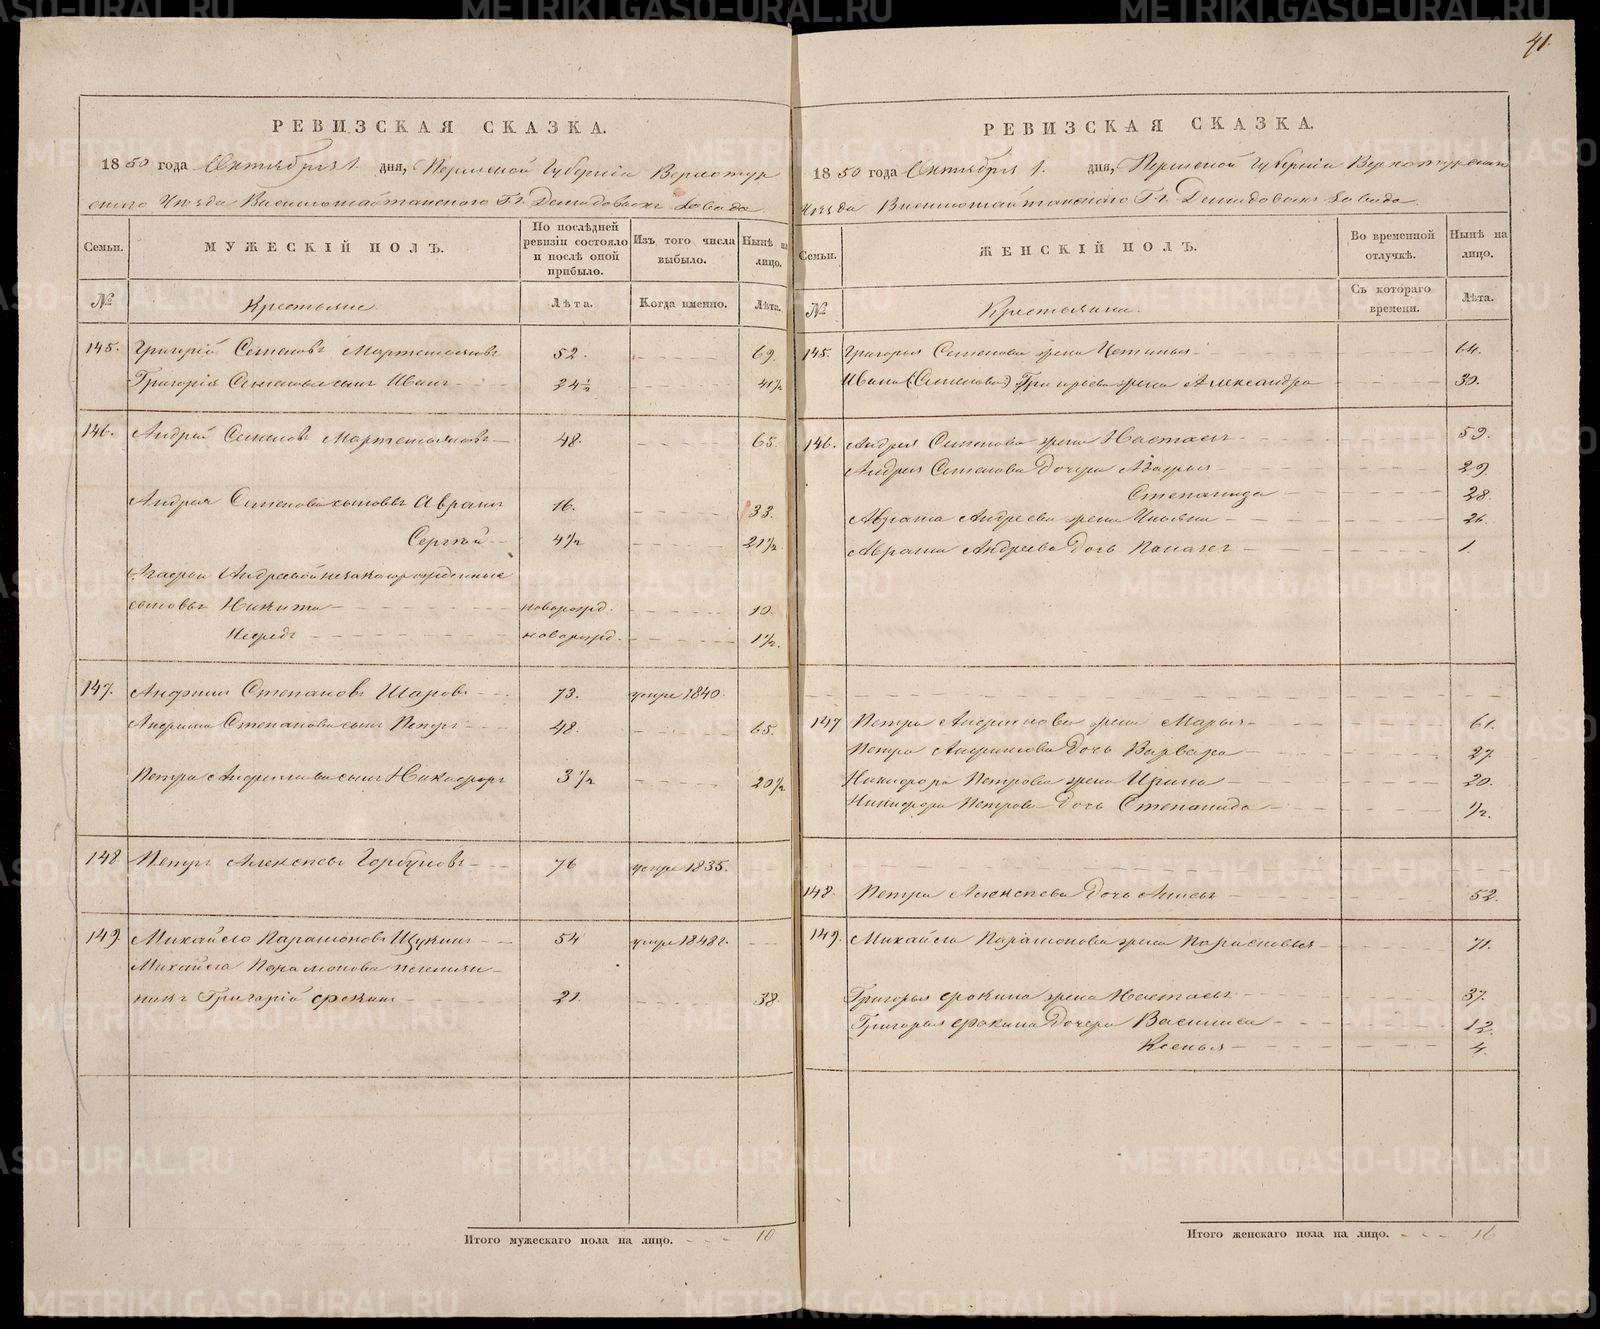 41.
РЕВИЗСКАЯ СКАЗКА.
1850 года Октября 1. дня, Пермской Губерніи Верхотур
скаго Уѣзда Висимошайтанскаго Гг. Демидовыхъ Завода
Семьи.
МУЖЕСКІЙ ПОЛЪ.
По послѣдней ревизіи состояло и послѣ оной прибыло.
Изъ того числа выбыло.
Нынѣ на лицо.
№ Крестьяне Лѣта. Когда именно. Лѣта.
145. Григорій Семеновъ Мартемьяновъ 52. 69.
Григорія Семенова сынъ Иванъ 24 1/2 41 1/2
146. Андрей Семеновъ Мартемьяновъ 48. 65.
Андрея Семенова сыновья Аврамъ 16. 33.
Сергѣй 4 1/2 21 1/2
Агафьи Андреевой незаконорожденные
сыновья Никита новорожд. 10.
новорожд. 1 1/2.
147. Степановъ Шаровъ 73. умре 1840.
Степанова сынъ Петръ 48. 65.
Петра сынъ Никифоръ 3 1/2 20 1/2
148. Петръ Алексѣевъ Горбуновъ 76 умре 1835.
149. Михайло Парамоновъ Щукинъ 54 умре 1848 г.
Михайла Парамонова племян-
никъ Григорій Фокинъ 21. 38.
Итого мужескаго пола на лицо. 10
РЕВИЗСКАЯ СКАЗКА.
1850 года Октября 1. дня, Пермской Губерніи Верхотурскаго
Уѣзда Висимошайтанскаго Гг. Демидовыхъ Завода
Семьи.
ЖЕНСКІЙ ПОЛЪ.
Во временной отлучкѣ.
Нынѣ на лицо.
№ Крестьянки Съ котораго времени. Лѣта.
145. Григорья Семенова жена Устинья 64.
Ивана (Семенова) Григорьева жена Александра 30.
146. Андрея Семенова жена Настасья 59.
Андрея Семенова дочери Агафья 29.
Степанида 28.
Аврама Андреева жена 26.
Аврама Андреева дочь 1.
147 Петра жена Марья 61.
Петра дочь Варвара 27.
Никифора Петрова жена Ирина 20.
Никифора Петрова дочь Степанида 1/2.
148. Петра Алексѣева дочь 52.
149. Михайла Парамонова жена 71.
Григорья Фокина жена Настасья 37.
Григорья Фокина дочери Василиса 12.
Ксенья 4.
Итого женскаго пола на лицо. 16
METRIKI.GASO-URAL.RU